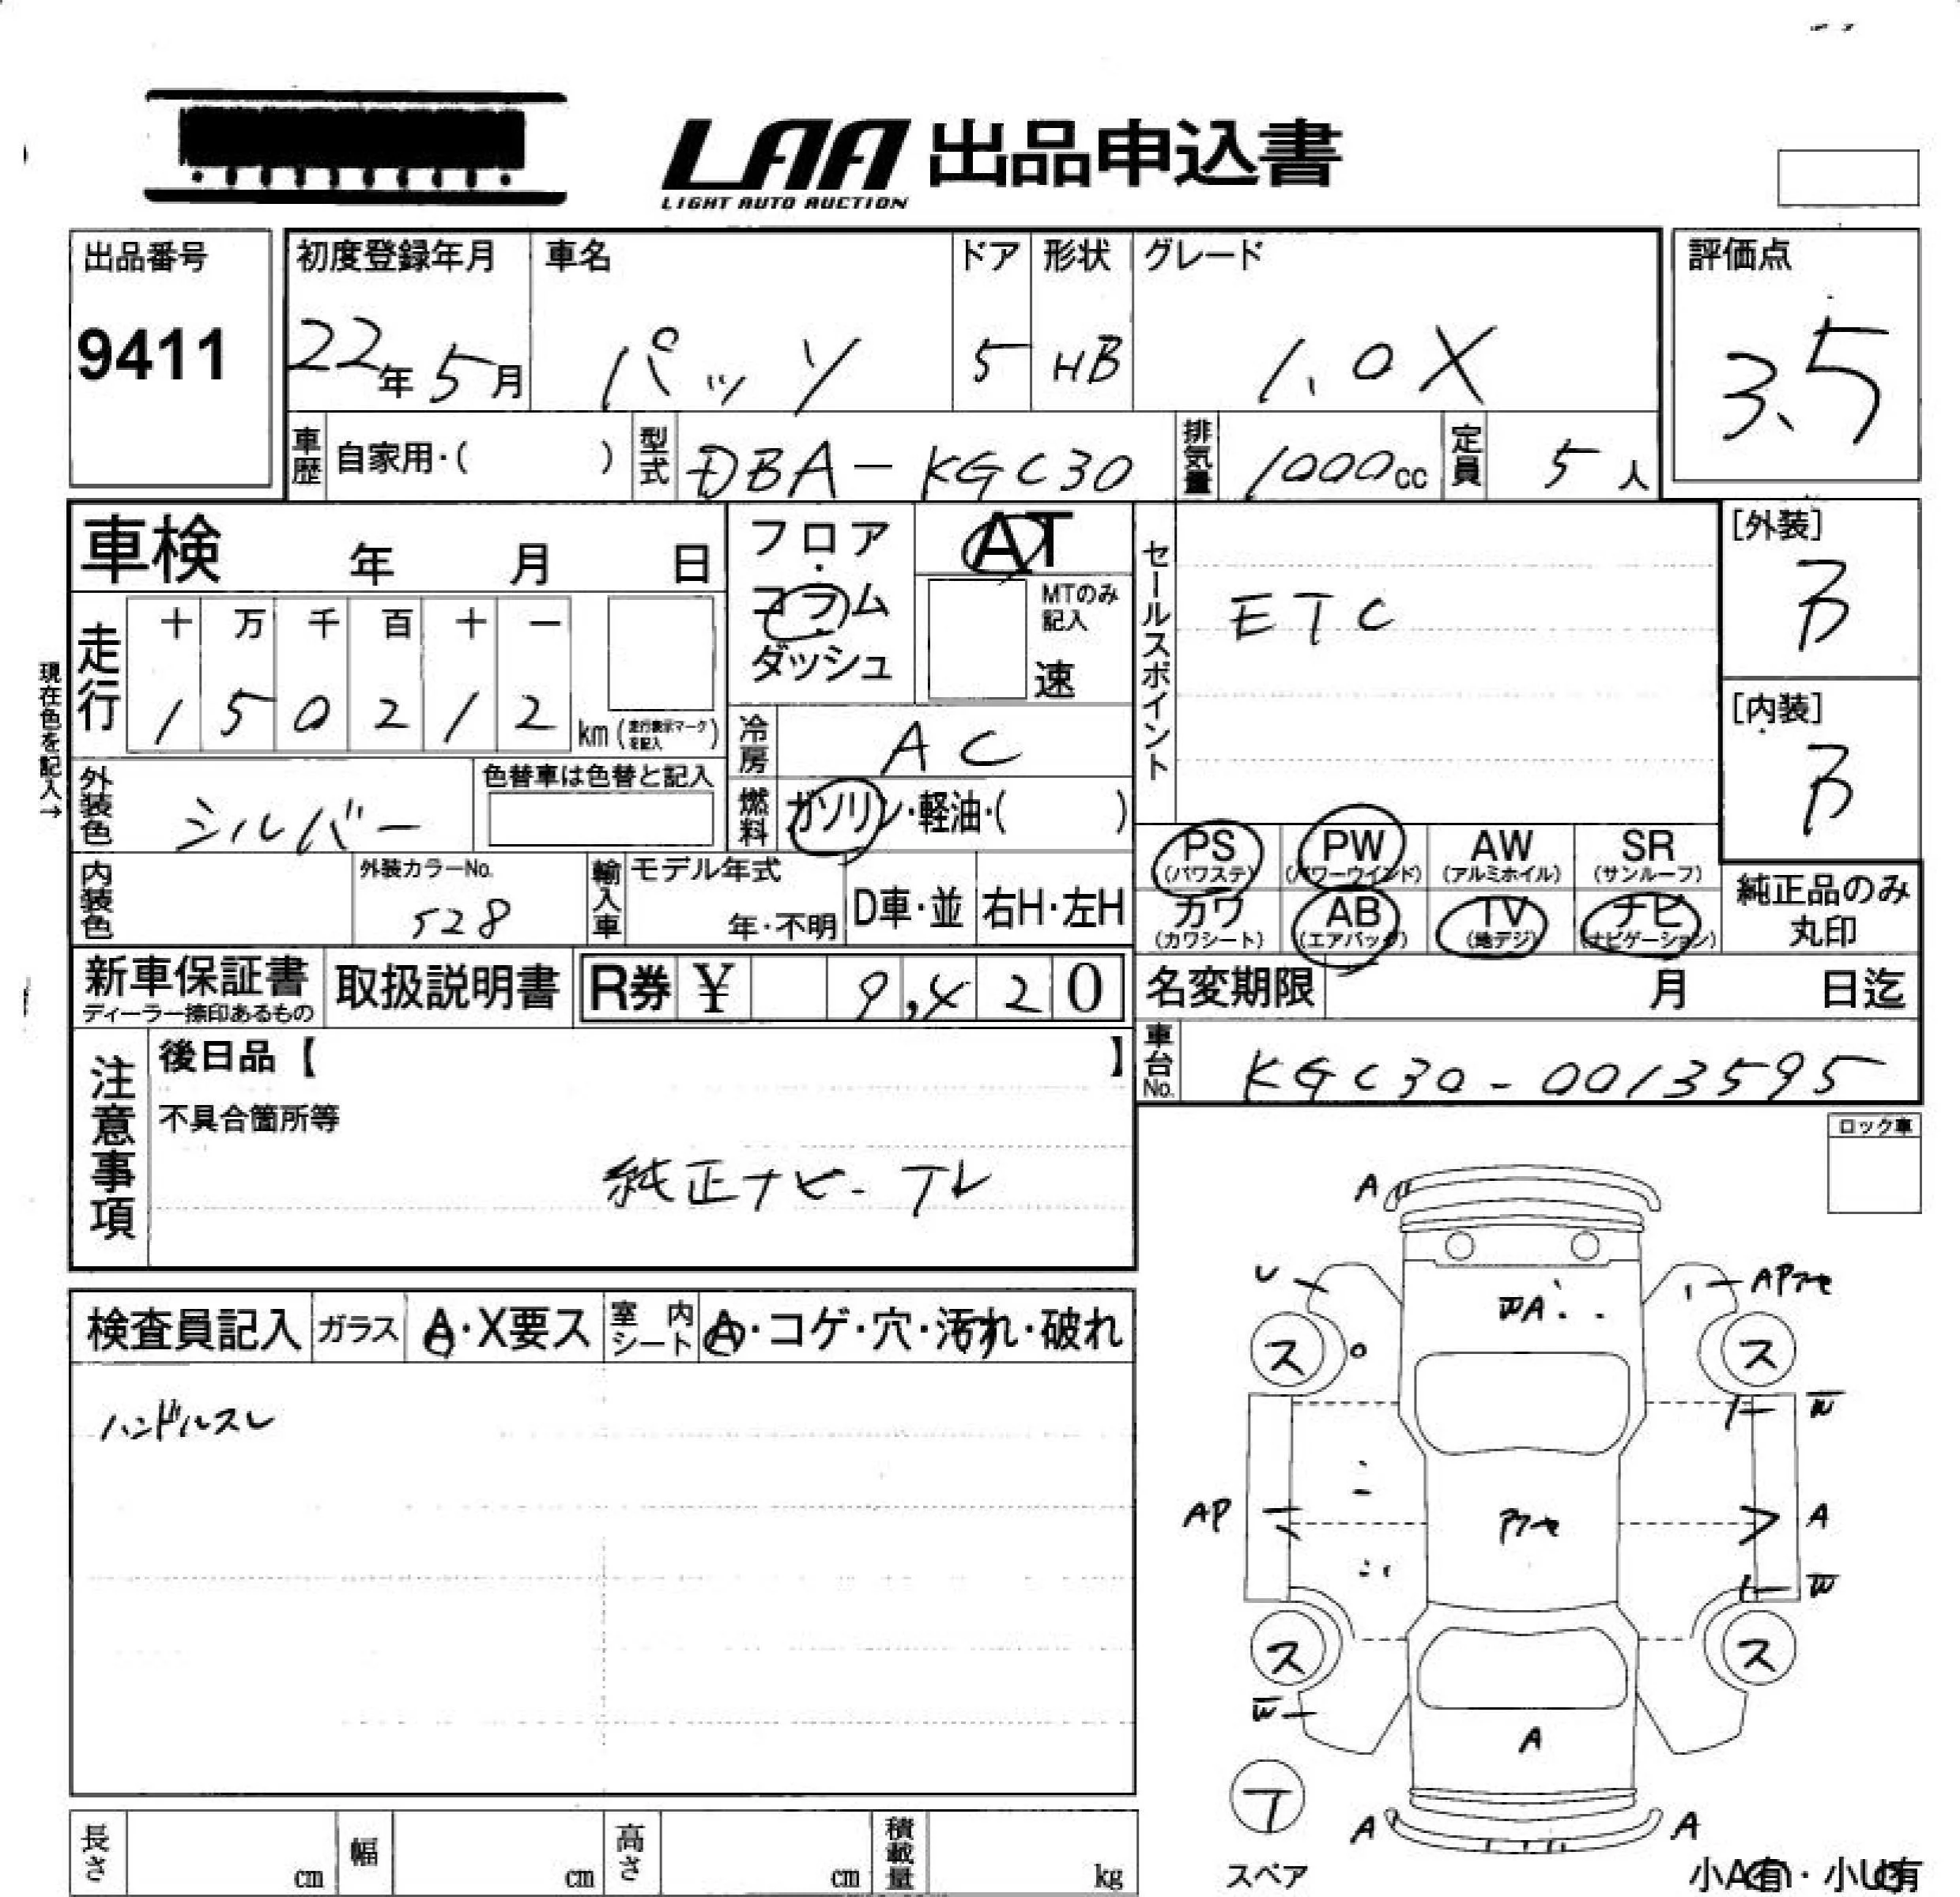 LAA 出品申込書
LIGHT AUTO AUCTION
出品番号
9411
初度登録年月
22年5月
車名
パッソ
ドア
5
形状
HB
グレード
1.0X
評価点
3.5
車歴
自家用・( )
型式
DBA-KGC30
排気量
1000cc
定員
5人
車検 年 月 日
フロア
・
コラム
・
ダッシュ
AT
MTのみ
記入
速
セールスポイント
ETC
[外装]
B
[内装]
B
現在色を記入→
走行
十 万 千 百 十 一
1 5 0 2 1 2
km (走行表示マークを記入)
冷房
AC
外装色
シルバー
色替車は色替と記入
燃料
ガソリン・軽油・( )
PS
(パワステ)
PW
(パワーウインド)
AW
(アルミホイル)
SR
(サンルーフ)
カワ
(カワシート)
AB
(エアバッグ)
TV
(地デジ)
ナビ
(ナビゲーション)
純正品のみ
丸印
内装色
外装カラーNo.
528
輸入車
モデル年式
年・不明
D車・並
右H・左H
新車保証書
ディーラー捺印あるもの
取扱説明書
R券 ¥ 9,420
名変期限 月 日迄
車台No.
KGC30-0013595
注意事項
後日品【 】
不具合箇所等
純正ナビ-TV
ロック車
検査員記入
ガラス
A・X要ス
室内シート
A・コゲ・穴・汚れ・破れ
ハンドルスレ
A
U
APアセ
A
ス
ス
W
AP
アセ
A
W
ス
ス
W
A
T
スペア
A
A
小A有・小U有
長さ cm
幅 cm
高さ cm
積載量 kg